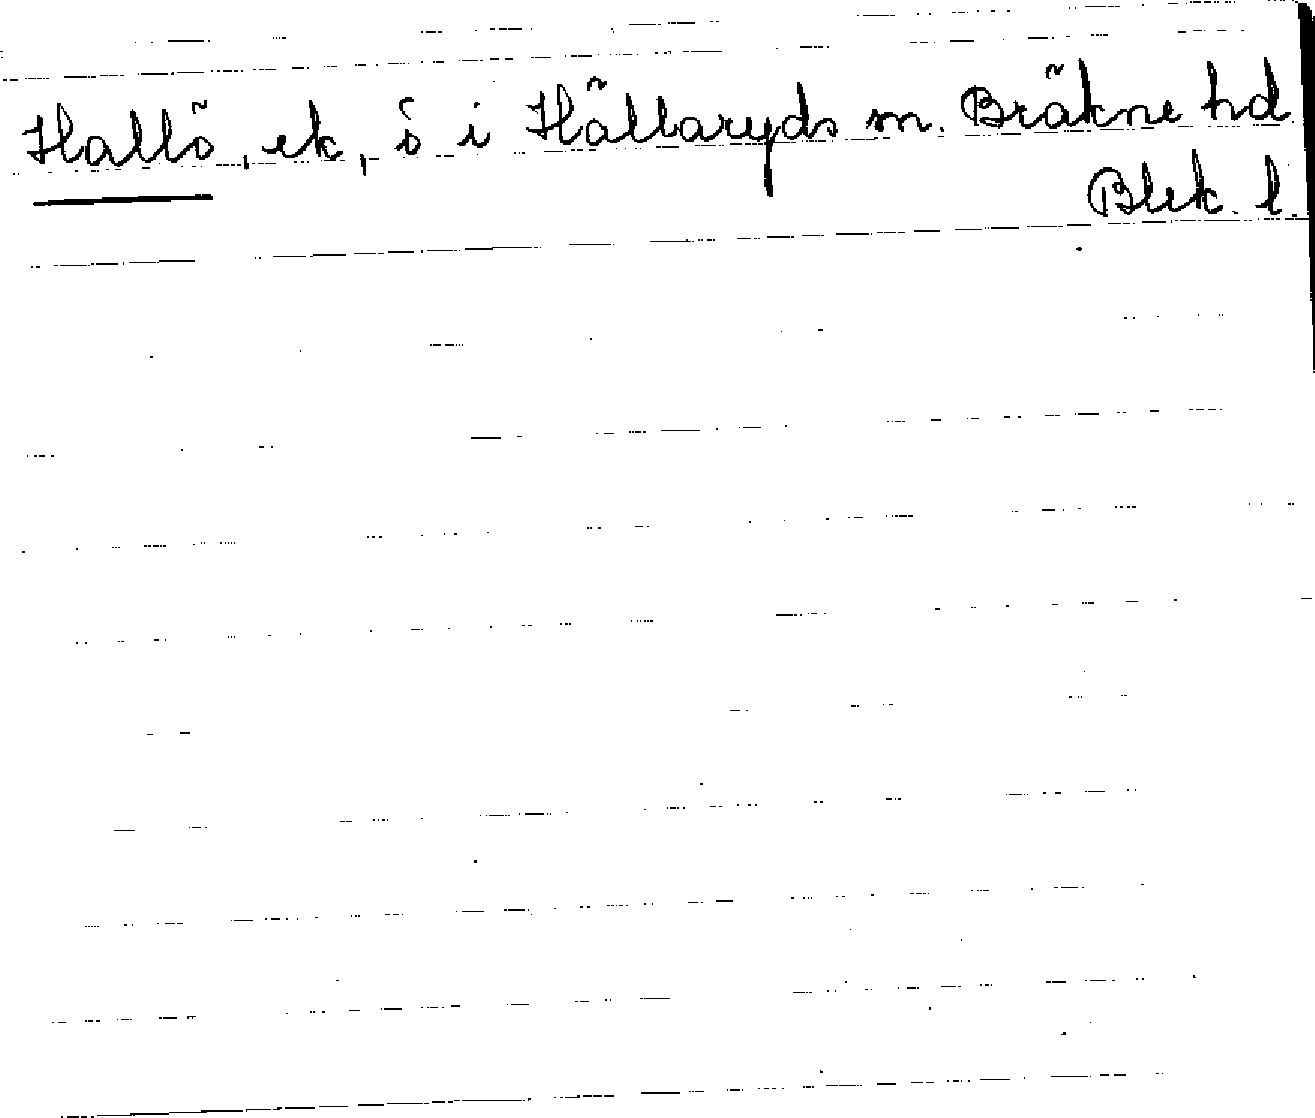 Hallö, ek, ö i Hällaryds sn. Bräkne hd
Blek. l.